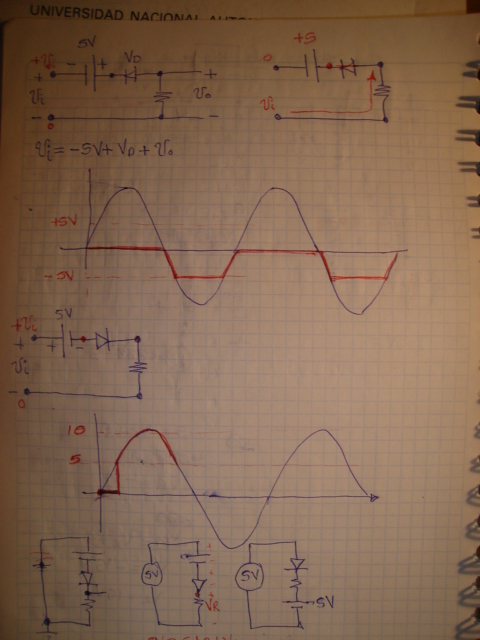 UNIVERSIDAD NACIONAL AUTO
5V +5
+Vi - + VD 0
+ +
Vi Vo Vi
- -
0
Vi = -5V + VD + Vo
+5V
-5V
5V
+Vi
+ + -
Vi
-
0
10
5
5V 5V 5V
VR